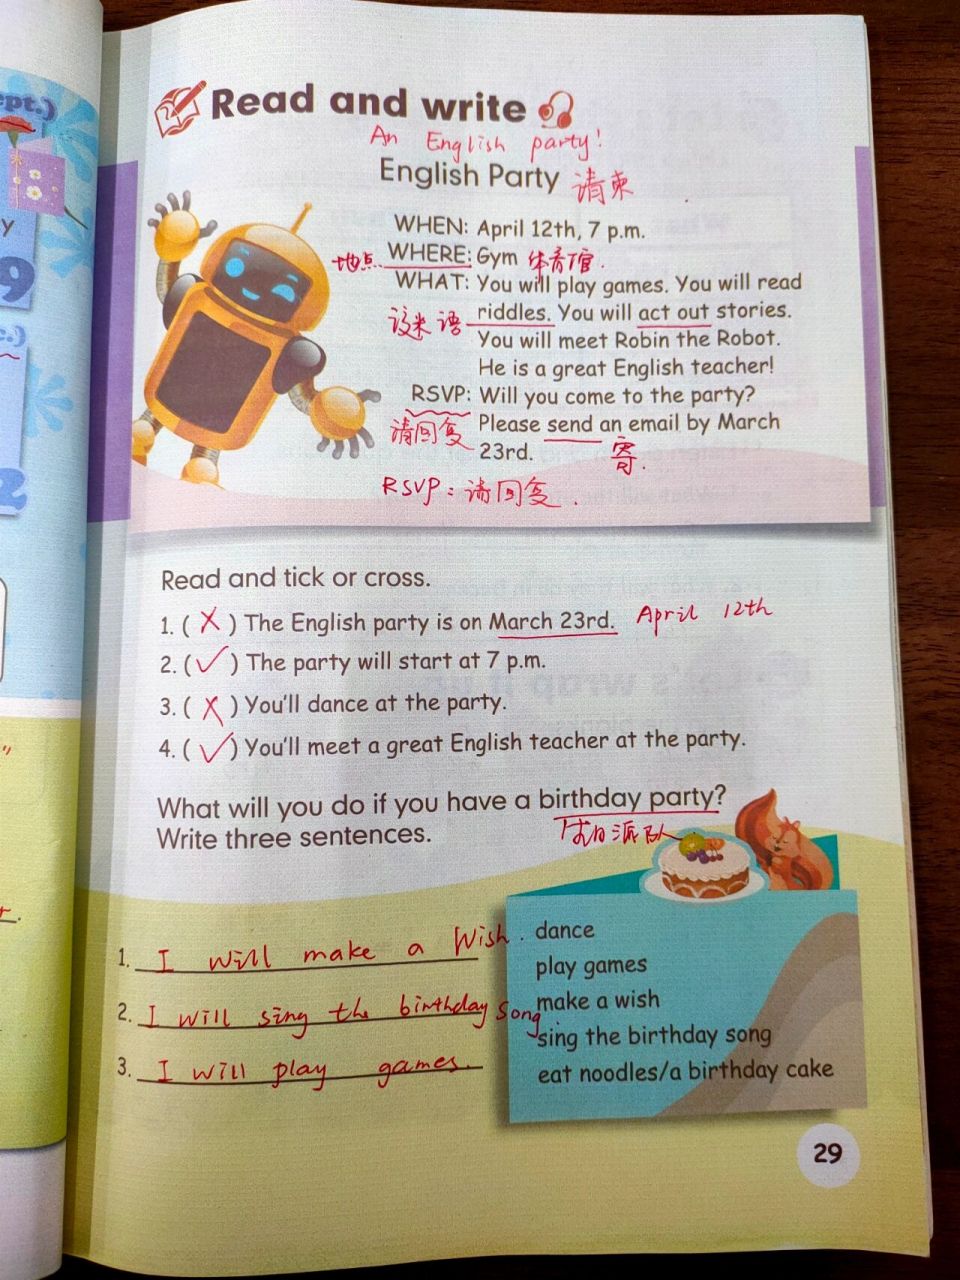 ept.)
y
9
:.)
2
"
r.
Read and write
An English party!
English Party 请柬
WHEN: April 12th, 7 p.m.
地点 WHERE: Gym 体育馆.
WHAT: You will play games. You will read
谜语 riddles. You will act out stories.
You will meet Robin the Robot.
He is a great English teacher!
RSVP: Will you come to the party?
请回复 Please send an email by March
23rd. 寄.
RSVP: 请回复.
Read and tick or cross.
1. (X) The English party is on March 23rd. April 12th
2. (✓) The party will start at 7 p.m.
3. (X) You'll dance at the party.
4. (✓) You'll meet a great English teacher at the party.
What will you do if you have a birthday party?
Write three sentences. 派队
1. I will make a Wish.
2. I will sing the birthday song.
3. I will play games.
dance
play games
make a wish
sing the birthday song
eat noodles/a birthday cake
29